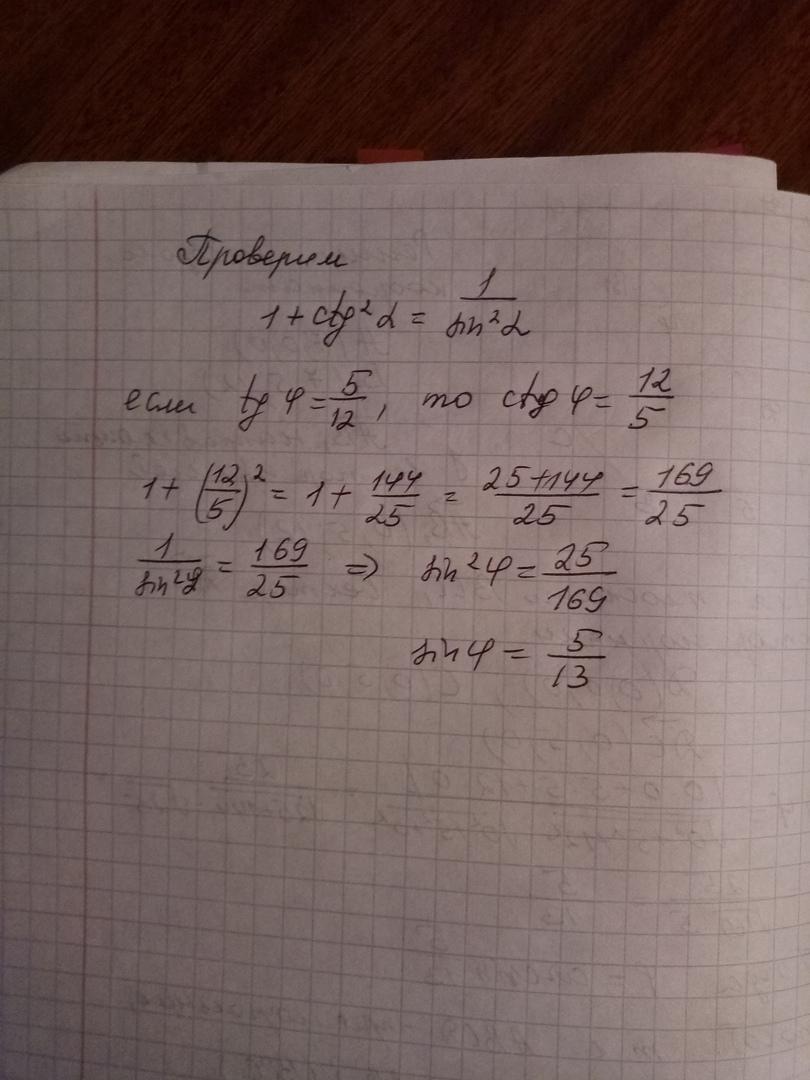 Проверим
1 + ctg²α = 1/sin²α
если tg φ = 5/12, то ctg φ = 12/5
1 + (12/5)² = 1 + 144/25 = 25+144/25 = 169/25
1/sin²φ = 169/25 => sin²φ = 25/169
sin φ = 5/13